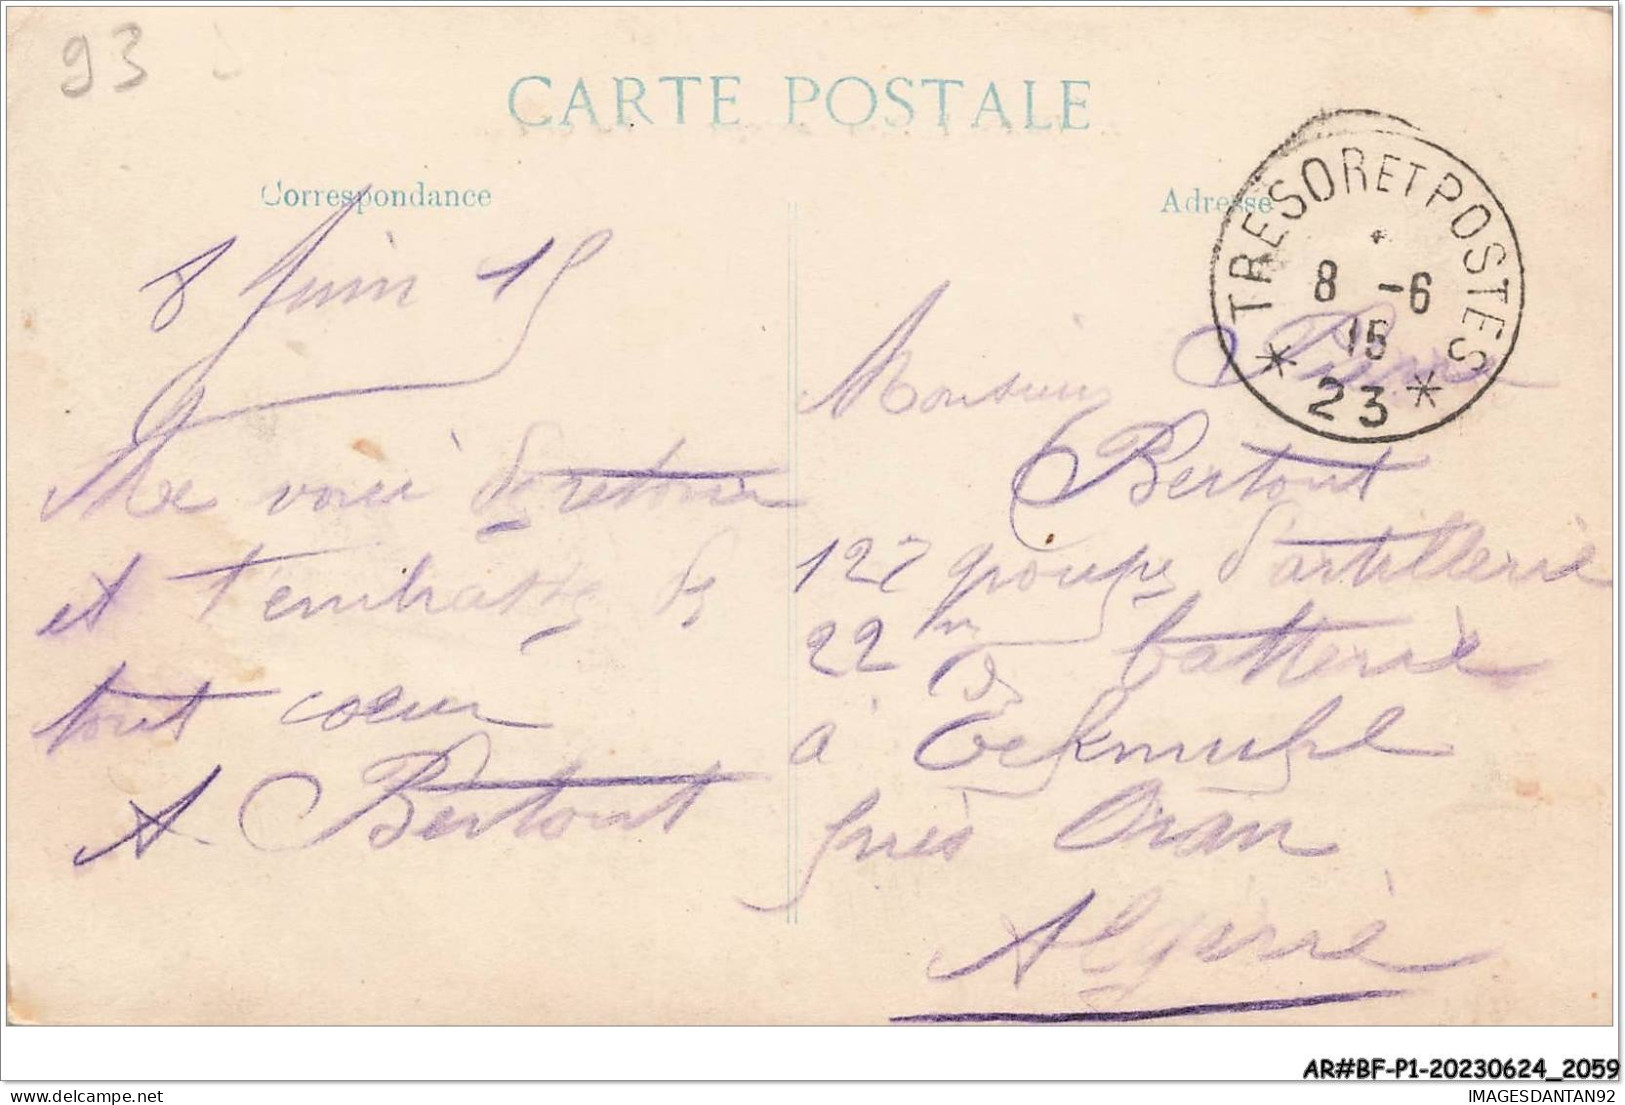 93
CARTE POSTALE
Correspondance
Adresse
TRESOR ET POSTES
8 -6
15
* 23 *
8 Juin 15
Me voici de retour
et t'embrasse de
tout coeur
A. Bertout
Monsieur Pierre
Bertout
127 groupe d'artillerie
22me batterie
à Eckmuhl
près Oran
Algérie
AR#BF-P1-20230624_2059
IMAGESDANTAN92